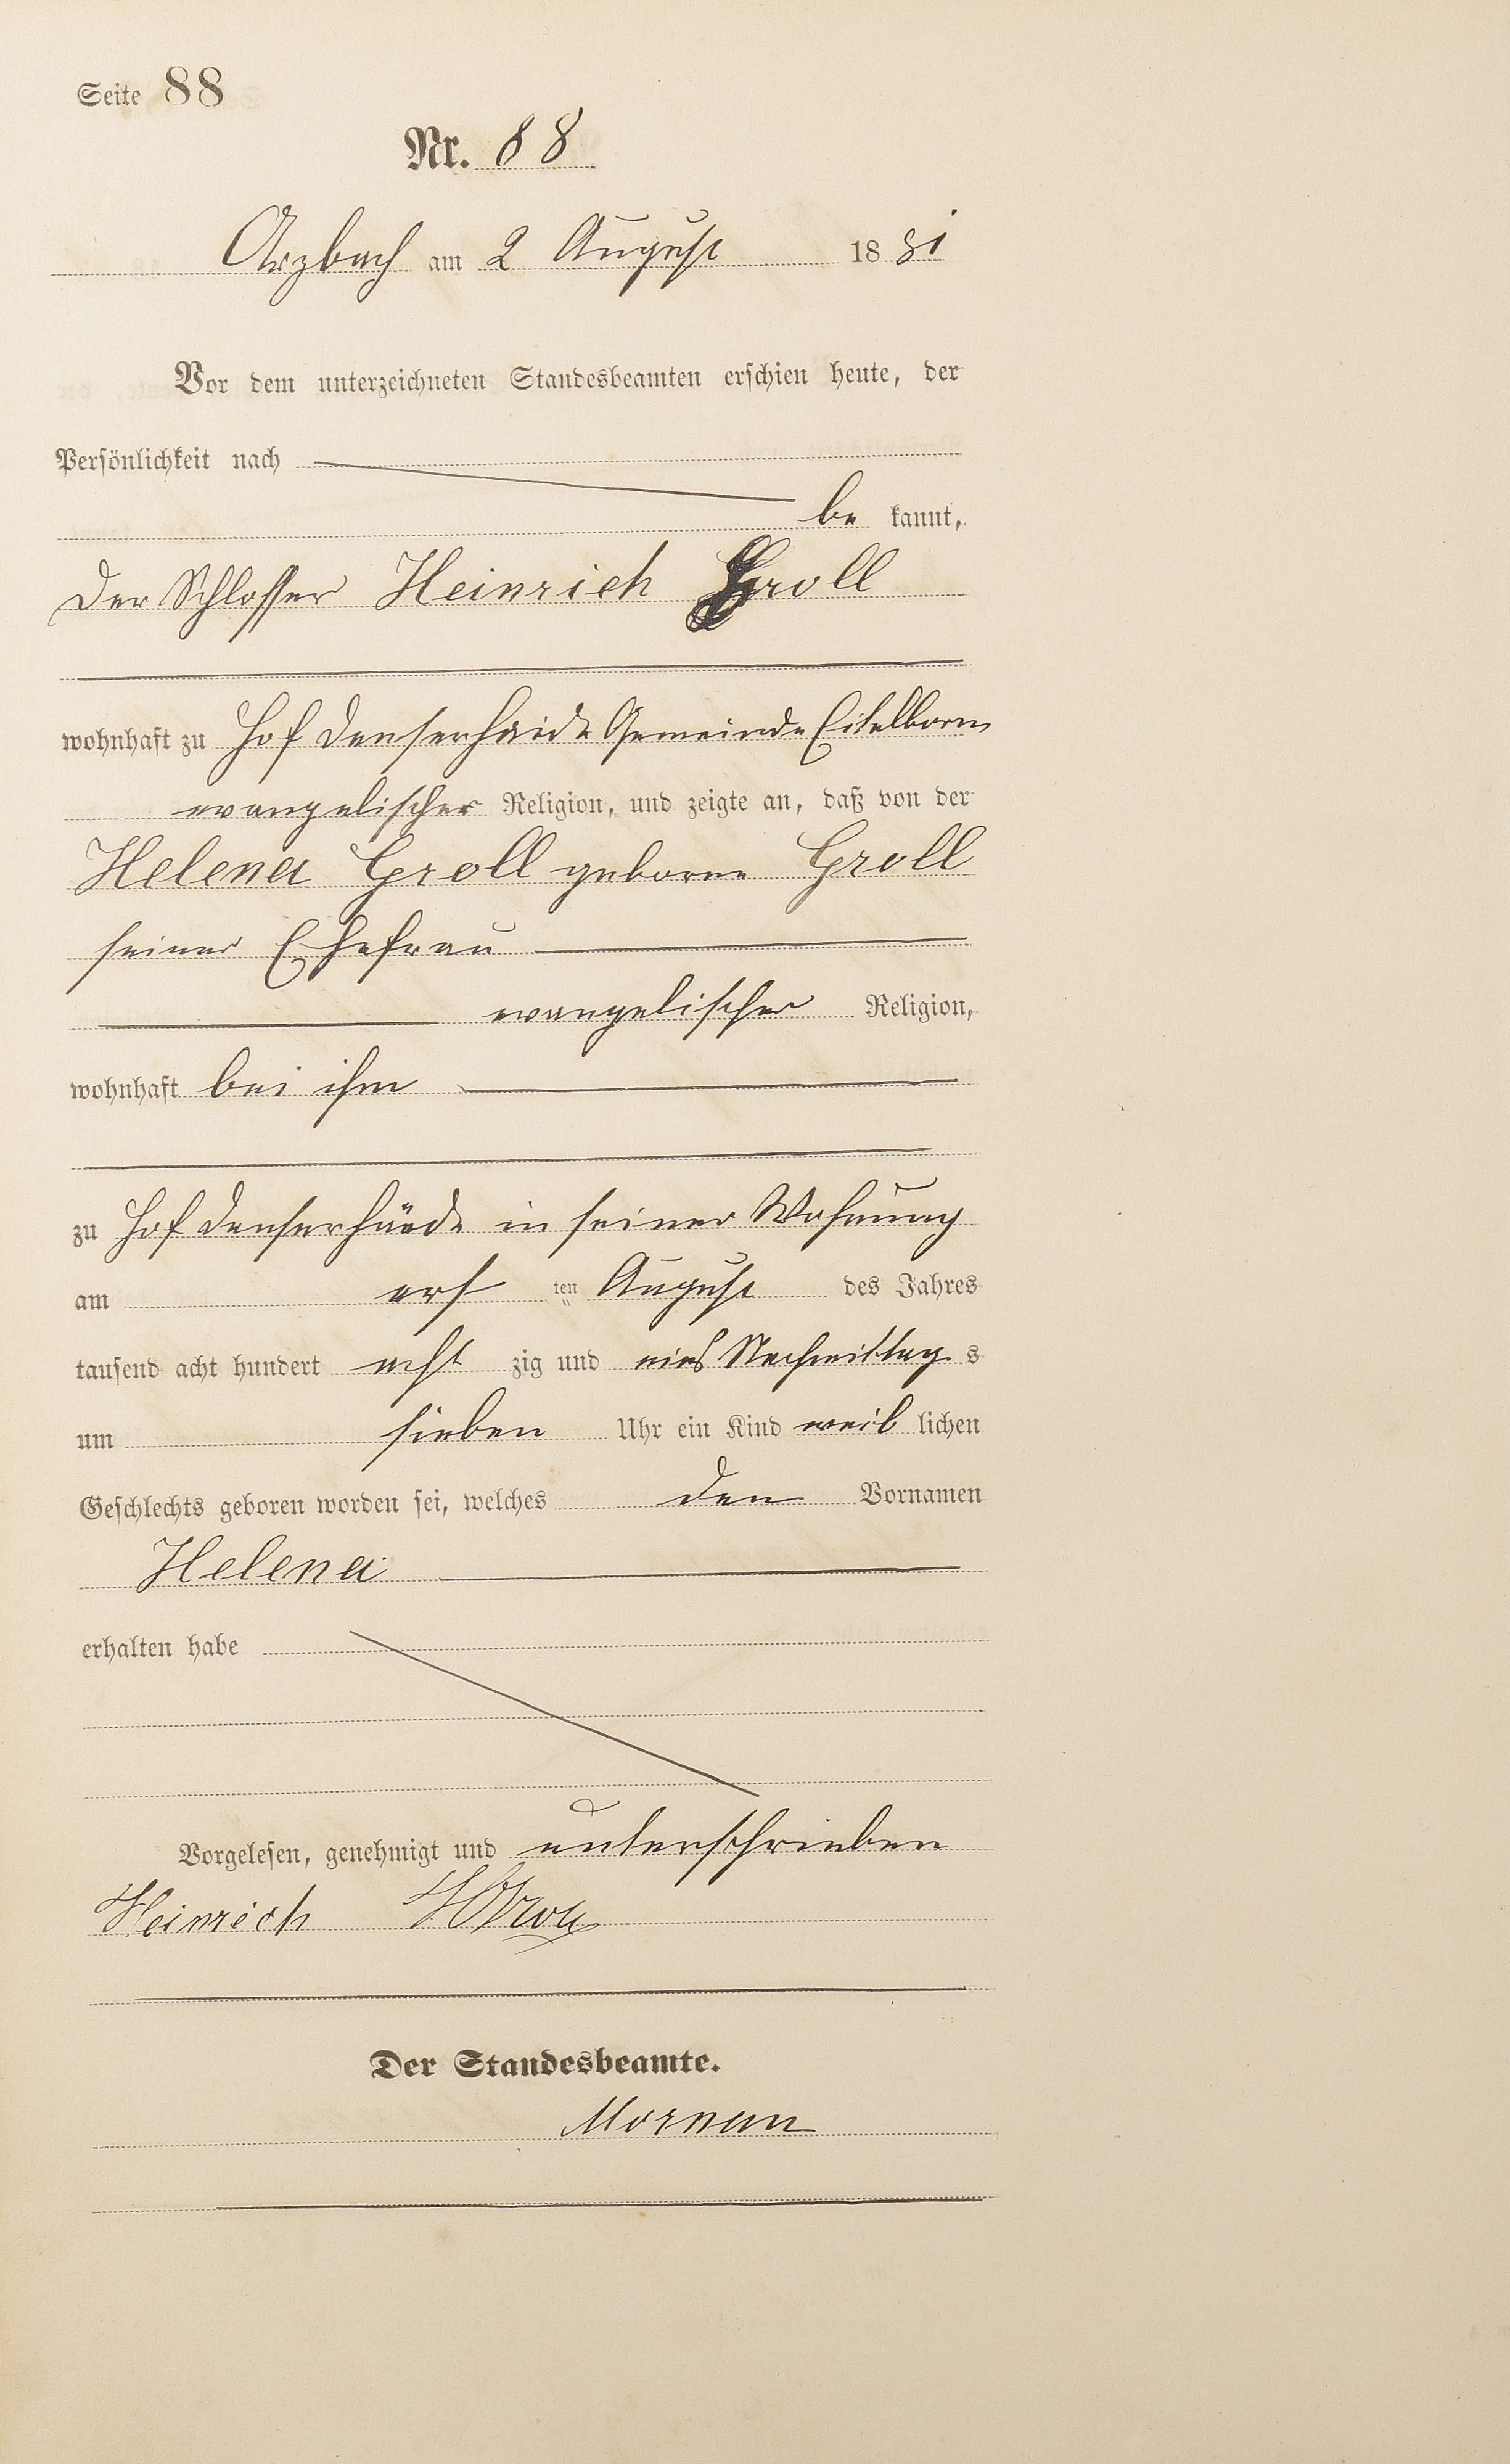 Seite 88
Nr. 88
Arzbach am 2 August 1881
Vor dem unterzeichneten Standesbeamten erschien heute, der
Persönlichkeit nach
be kannt,
der Schlosser Heinrich Groll
wohnhaft zu Hof Denserhaide Gemeinde Eitelborn
evangelischer Religion, und zeigte an, daß von der
Helena Groll geborne Groll
seiner Ehefrau
evangelischer Religion,
wohnhaft bei ihm
zu Hof Denserhaide in seiner Wohnung
am ers ten August des Jahres
tausend acht hundert acht zig und eins Nachmittag s
um sieben Uhr ein Kind weib lichen
Geschlechts geboren worden sei, welches den Vornamen
Helena
erhalten habe
Vorgelesen, genehmigt und unterschrieben
Heinrich
Der Standesbeamte.